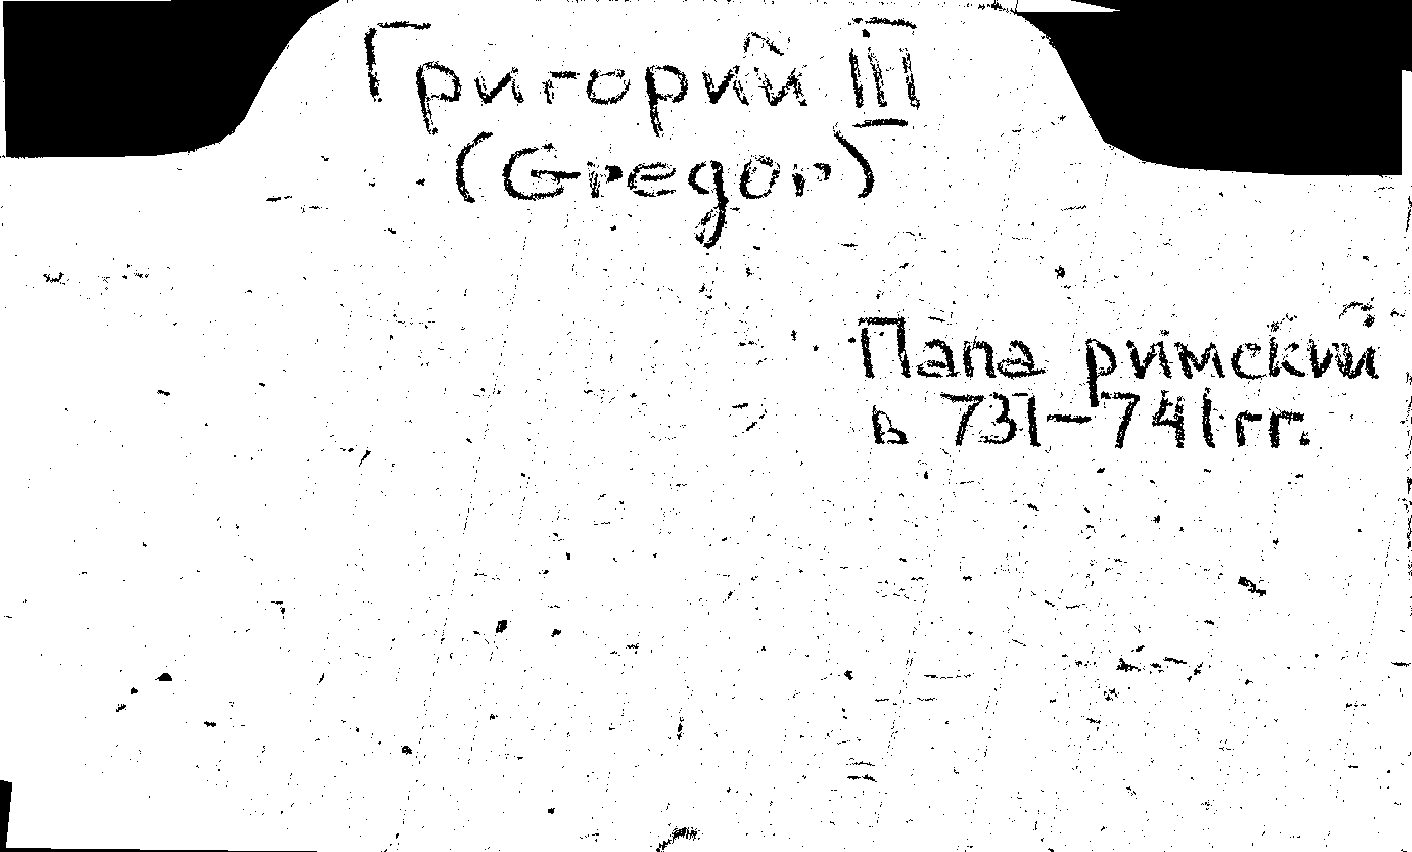 Григорий III
(Gregor)
Папа римский
в 731-741гг.